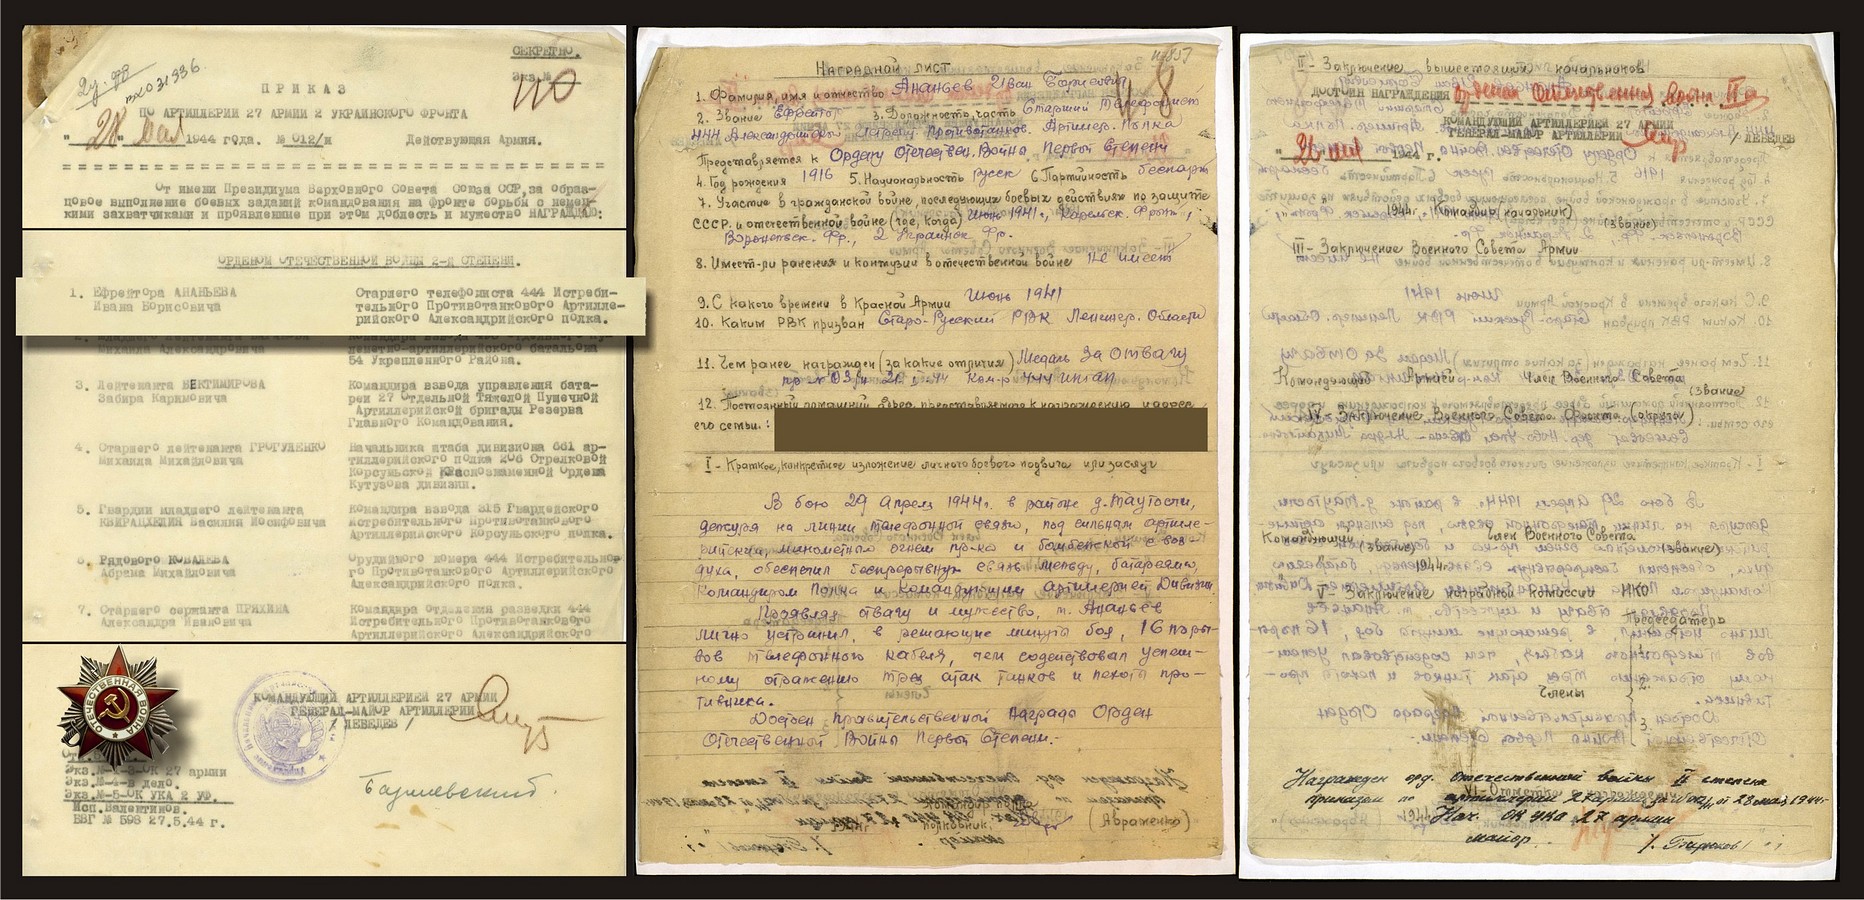 СЕКРЕТНО.
Экз.№
ПРИКАЗ
ПО АРТИЛЛЕРИИ 27 АРМИИ 2 УКРАИНСКОГО ФРОНТА
"28" мая 1944 года. № 012/н Действующая Армия.
От имени Президиума Верховного Совета Союза ССР, за образ-
цовое выполнение боевых заданий командования на фронте борьбы с немец-
кими захватчиками и проявленные при этом доблесть и мужество НАГРАЖДАЮ:
ОРДЕНОМ ОТЕЧЕСТВЕННОЙ ВОЙНЫ 2-й СТЕПЕНИ.
1. Ефрейтора АНАНЬЕВА Старшего телефониста 444 Истреби-
Ивана Борисовича тельного Противотанкового Артилле-
рийского Александрийского полка.
Михаила Александровича
54 Укрепленного Района.
3. Лейтенанта БЕКТИМИРОВА Командира взвода управления бата-
Забира Каримовича реи 27 Отдельной Тяжелой Пушечной
Артиллерийской бригады Резерва
Главного Командования.
4. Старшего лейтенанта Начальника штаба дивизиона 661 ар-
Михаила Михайловича тиллерийского полка 206 Стрелковой
Корсуньской Краснознаменной Ордена
Кутузова дивизии.
5. Гвардии младшего лейтенанта Командира взвода 315 Гвардейского
Василия Иосифовича Истребительного Противотанкового
Артиллерийского Корсуньского полка.
6. Рядового КОВАЛЕВА Орудийного номера 444 Истребительно-
Абрама Михайловича го Противотанкового Артиллерийского
Александрийского полка.
7. Старшего сержанта ПРЯХИНА Командира отделения разведки 444
Александра Ивановича Истребительного Противотанкового
Артиллерийского Александрийского
КОМАНДУЮЩИЙ АРТИЛЛЕРИЕЙ 27 АРМИИ
ГЕНЕРАЛ-МАЙОР АРТИЛЛЕРИИ
/ ЛЕБЕДЕВ /
ОТЕЧЕСТВЕННАЯ ВОЙНА
27 армии
Экз.№-4-в дело.
Экз.№-5-ОК УКА 2 УФ.
Исп.Валентинов.
ВБГ № 598 27.5.44 г.
НАГРАДНОЙ ЛИСТ
1. Фамилия, имя и отчество Ананьев Иван Борисович
2. Звание Ефрейтор 3. Должность, часть Старший Телефонист
444 Александрийский Истреб. Противотанков. Артилер. Полка
Представляется к Ордену Отечествен. Война Первой Степени
4. Год рождения 1916 5. Национальность русск 6 Партийность беспарт
7. Участие в гражданской войне, последующих боевых действиях по защите
СССР и отечественной войне (где, когда) Июнь 1941г., Карельск. Фронт,
Воронежск. Фр., 2 Украинск Фр.
8. Имеет-ли ранения и контузии в отечественной войне Не имеет
9. С какого времени в Красной Армии Июнь 1941
10. Каким РВК призван Старо-Русский РВК Ленингр. Области
11. Чем ранее награжден (за какие отличия) Медаль За Отвагу
12. Постоянный домашний адрес представляемого к награждению и адрес
его семьи:
I - Краткое, конкретное изложение личного боевого подвига или заслуг
В бою 29 Апреля 1944г. в районе д. Таутосчи,
дежуря на линии телефонной связи, под сильным артиле-
рийским, минометным огнем пр-ка и бомбежкой с воз-
духа, обеспечил беспрерывную связь между, батареями,
Командиром Полка и Командующим артилерией Дивизии.
Проявляя отвагу и мужество, т. Ананьев
лично устранил, в решающие минуты боя, 16 поры-
вов телефонного кабеля, чем содействовал успеш-
ному отражению трех атак танков и пехоты про-
тивника.
Достоин Правительственной Награды Орден
Отечественной Войны Первой Степени.-
полковник,
(Авраменко)
II - Заключение вышестоящих начальников
ДОСТОИН НАГРАЖДЕНИЯ орденом Отечественная война II ст
КОМАНДУЮЩИЙ АРТИЛЛЕРИЕЙ 27 АРМИИ
ГЕНЕРАЛ-МАЙОР АРТИЛЛЕРИИ / ЛЕБЕДЕВ
1944 г.
1944г. (Командир/начальник)
(звание)
III - Заключение Военного Совета Армии
Командующий Армией Член Военного Совета
(звание)
IV - Заключение Военного Совета Фронта (округа)
Командующий Член Военного Совета
(звание) (звание)
1944г.
V - Заключение наградной комиссии НКО
Председатель
Члены
2.
3.
Награжден орд. Отечественной войны II степени
приказом по артиллерии 27 армии за № 012/н от 28 мая 1944г.
VI - Отметка
Нач. ОК УКА 27 армии
майор /. Бирюков/